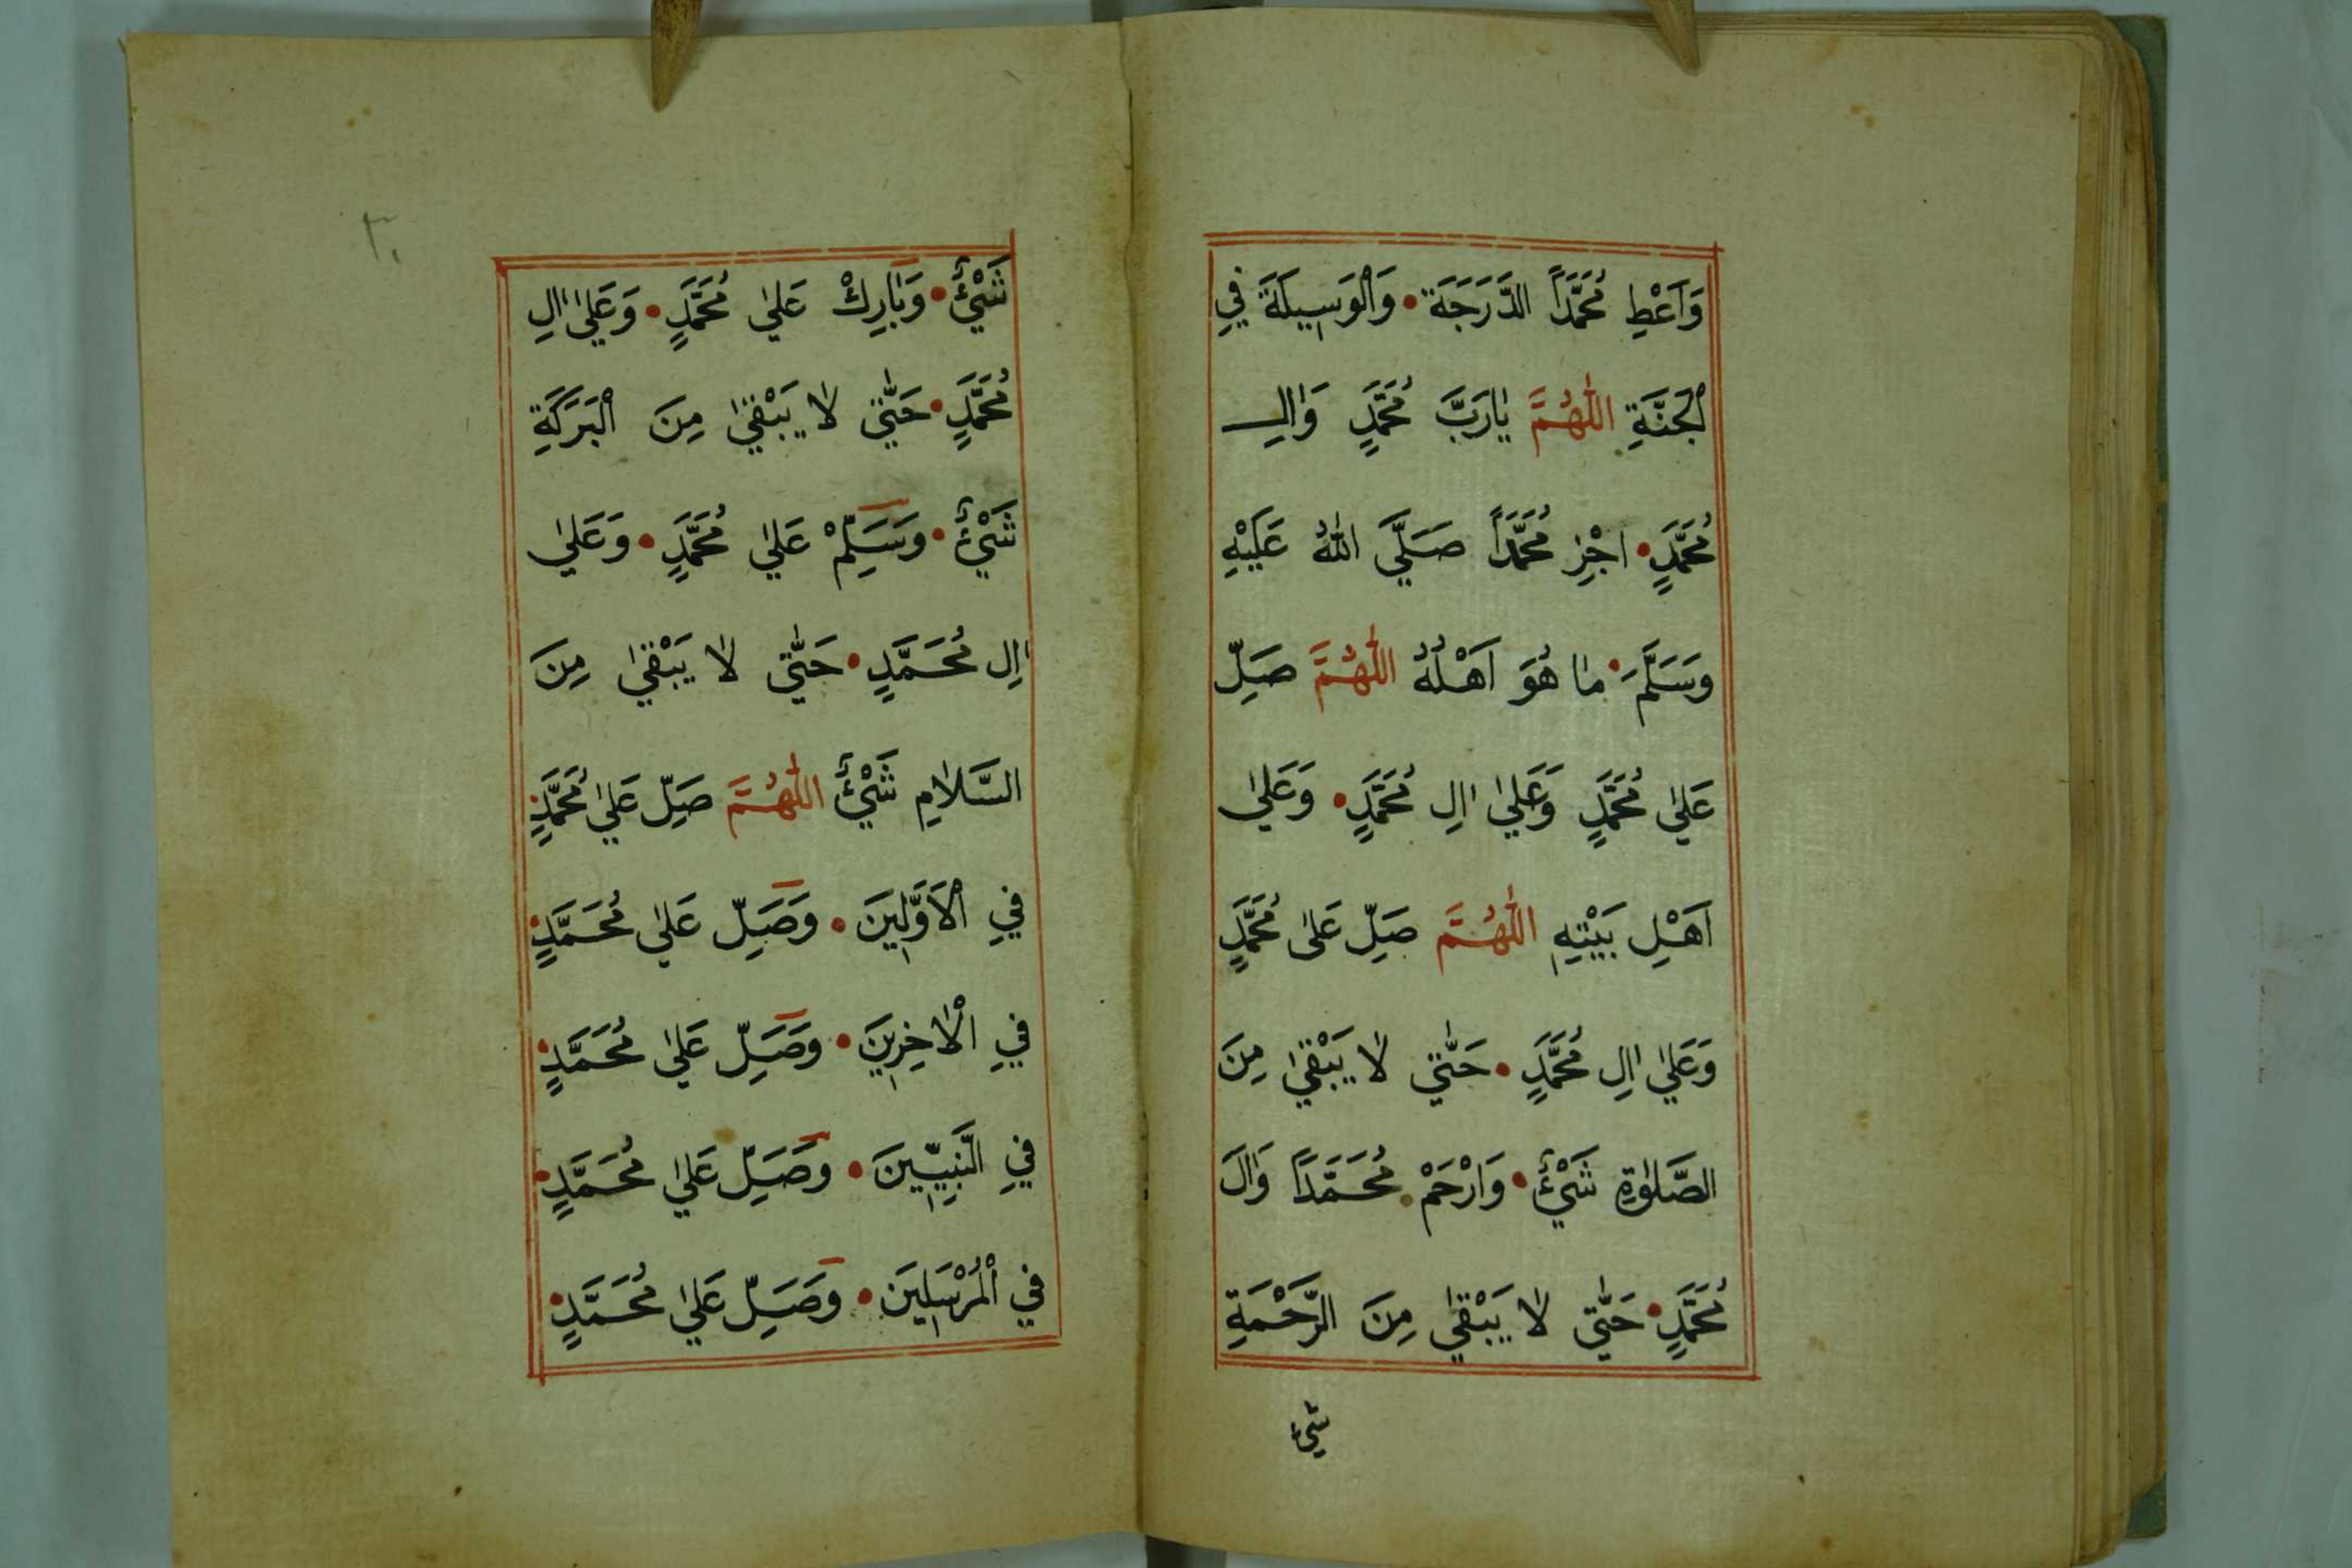 وَاَعْطِ مُحَمَّدًا الدَّرَجَةَ • وَالْوَسِيلَةَ فِي
الْجَنَّةِ اللّٰهُمَّ يَارَبَّ مُحَمَّدٍ وَاٰلِ
مُحَمَّدٍ • اجْزِ مُحَمَّدًا صَلَّي اللّٰهُ عَلَيْهِ
وَسَلَّمَ • مَا هُوَ اَهْلُهُ اللّٰهُمَّ صَلِّ
عَلٰي مُحَمَّدٍ وَعَلٰي اٰلِ مُحَمَّدٍ • وَعَلٰي
اَهْلِ بَيْتِهِ اللّٰهُمَّ صَلِّ عَلٰى مُحَمَّدٍ
وَعَلٰي اٰلِ مُحَمَّدٍ • حَتّٰي لَا يَبْقٰي مِنَ
الصَّلٰوةِ شَيْئٌ • وَارْحَمْ مُحَمَّدًا وَاٰلَ
مُحَمَّدٍ • حَتّٰي لَا يَبْقٰي مِنَ الرَّحْمَةِ
شيئ
٣٠
شَيْئٌ • وَبَارِكْ عَلٰي مُحَمَّدٍ • وَعَلٰي اٰلِ
مُحَمَّدٍ • حَتّٰي لَا يَبْقٰي مِنَ الْبَرَكَةِ
شَيْئٌ • وَسَلِّمْ عَلٰي مُحَمَّدٍ • وَعَلٰي
اٰلِ مُحَمَّدٍ • حَتّٰي لَا يَبْقٰي مِنَ
السَّلَامِ شَيْئٌ اللّٰهُمَّ صَلِّ عَلٰي مُحَمَّدٍ •
فِي الْاَوَّلِينَ • وَصَلِّ عَلٰي مُحَمَّدٍ •
فِي الْاٰخِرِينَ • وَصَلِّ عَلٰي مُحَمَّدٍ •
فِي النَّبِيِّينَ • وَصَلِّ عَلٰي مُحَمَّدٍ •
فِي الْمُرْسَلِينَ • وَصَلِّ عَلٰي مُحَمَّدٍ •